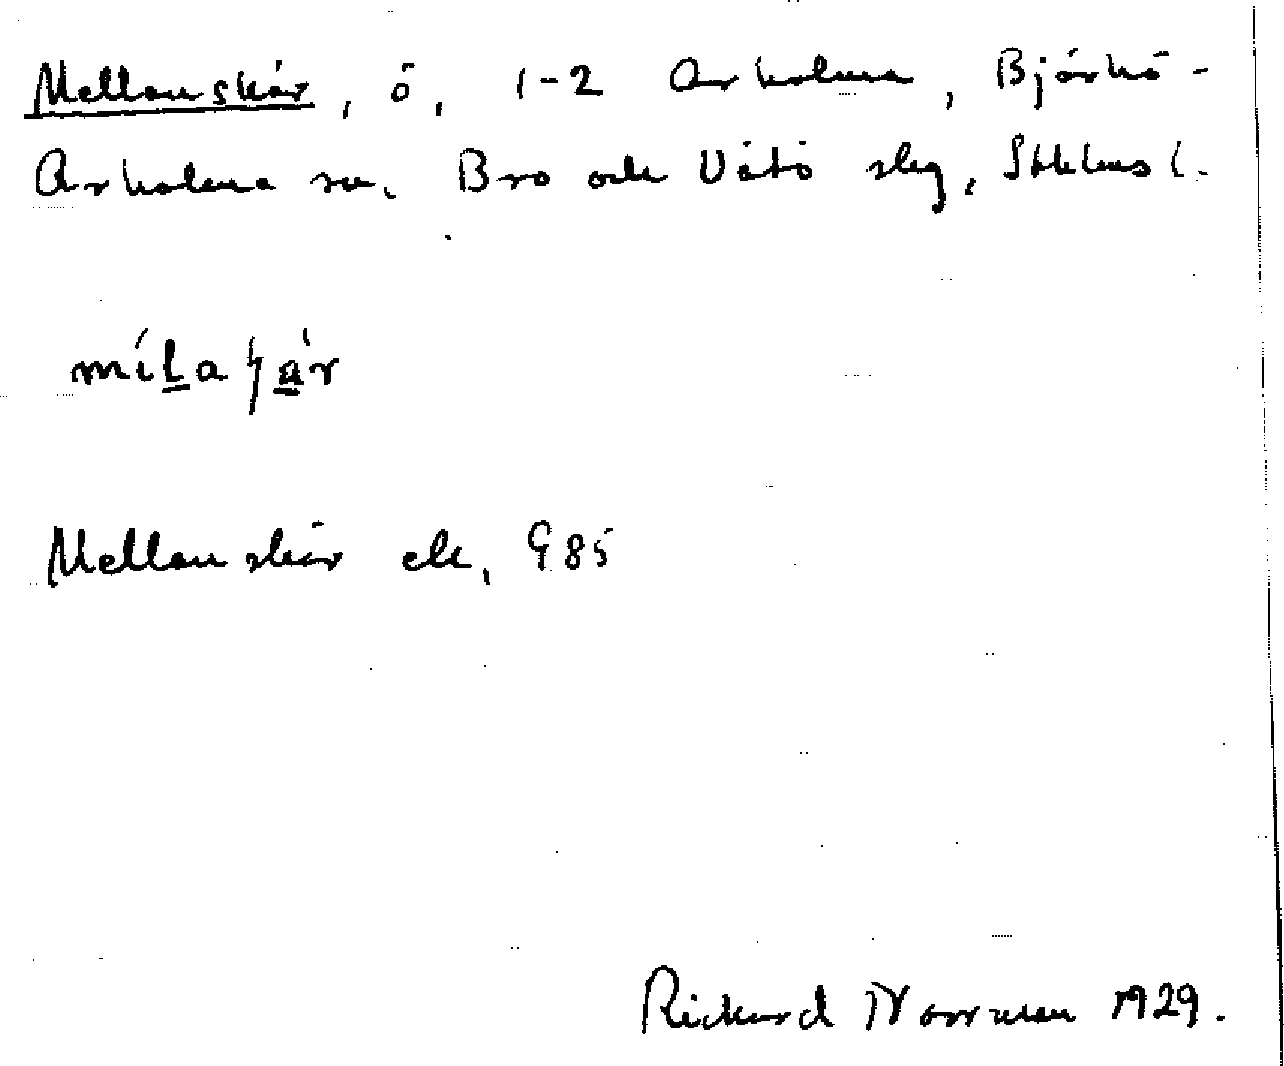 Mellanskär, ö, 1-2 Arholma, Björkö-
Arholma sn. Bro och Vätö slg, Sthlms l.
Mellanskär ek, G85
Rickard Norrman 1929.